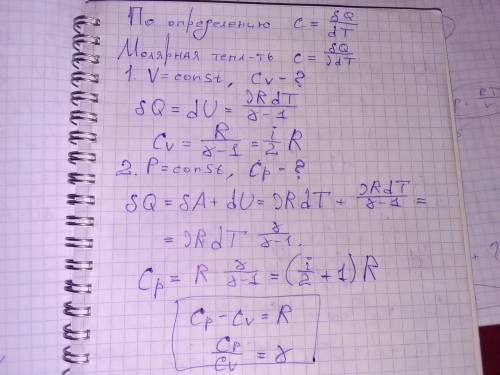 По определению c = δQ/dT
Молярная тепл-ть c = δQ/νdT
1. V = const, Cv - ?
δQ = dU = νRdT/γ-1
Cv = R/γ-1 = i/2 R
2. P = const, Cp - ?
δQ = δA + dU = νRdT + νRdT/γ-1 =
= νRdT γ/γ-1.
Cp = R γ/γ-1 = (i/2 + 1)R
Cp - Cv = R
Cp/Cv = γ